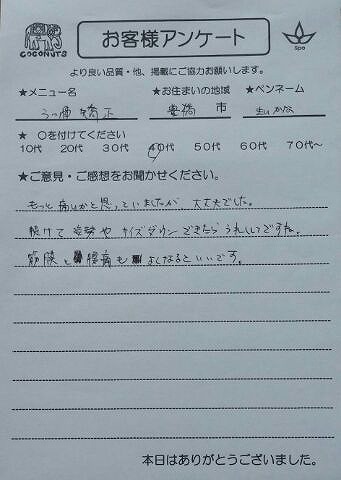 COCONUTS
お客様アンケート
spa
より良い品質・他、掲載にご協力お願いします。
★メニュー名 ★お住まいの地域 ★ペンネーム
矯正 豊橋 市
★ ○を付けてください
10代 20代 30代 40代 50代 60代 70代~
★ご意見・ご感想をお聞かせください。
もっと痛いかと思っていましたが、大丈夫でした。
続けて 姿勢や サイズダウン できたら うれしいですね。
筋膜と 腰痛も よくなるといいです。
本日はありがとうございました。